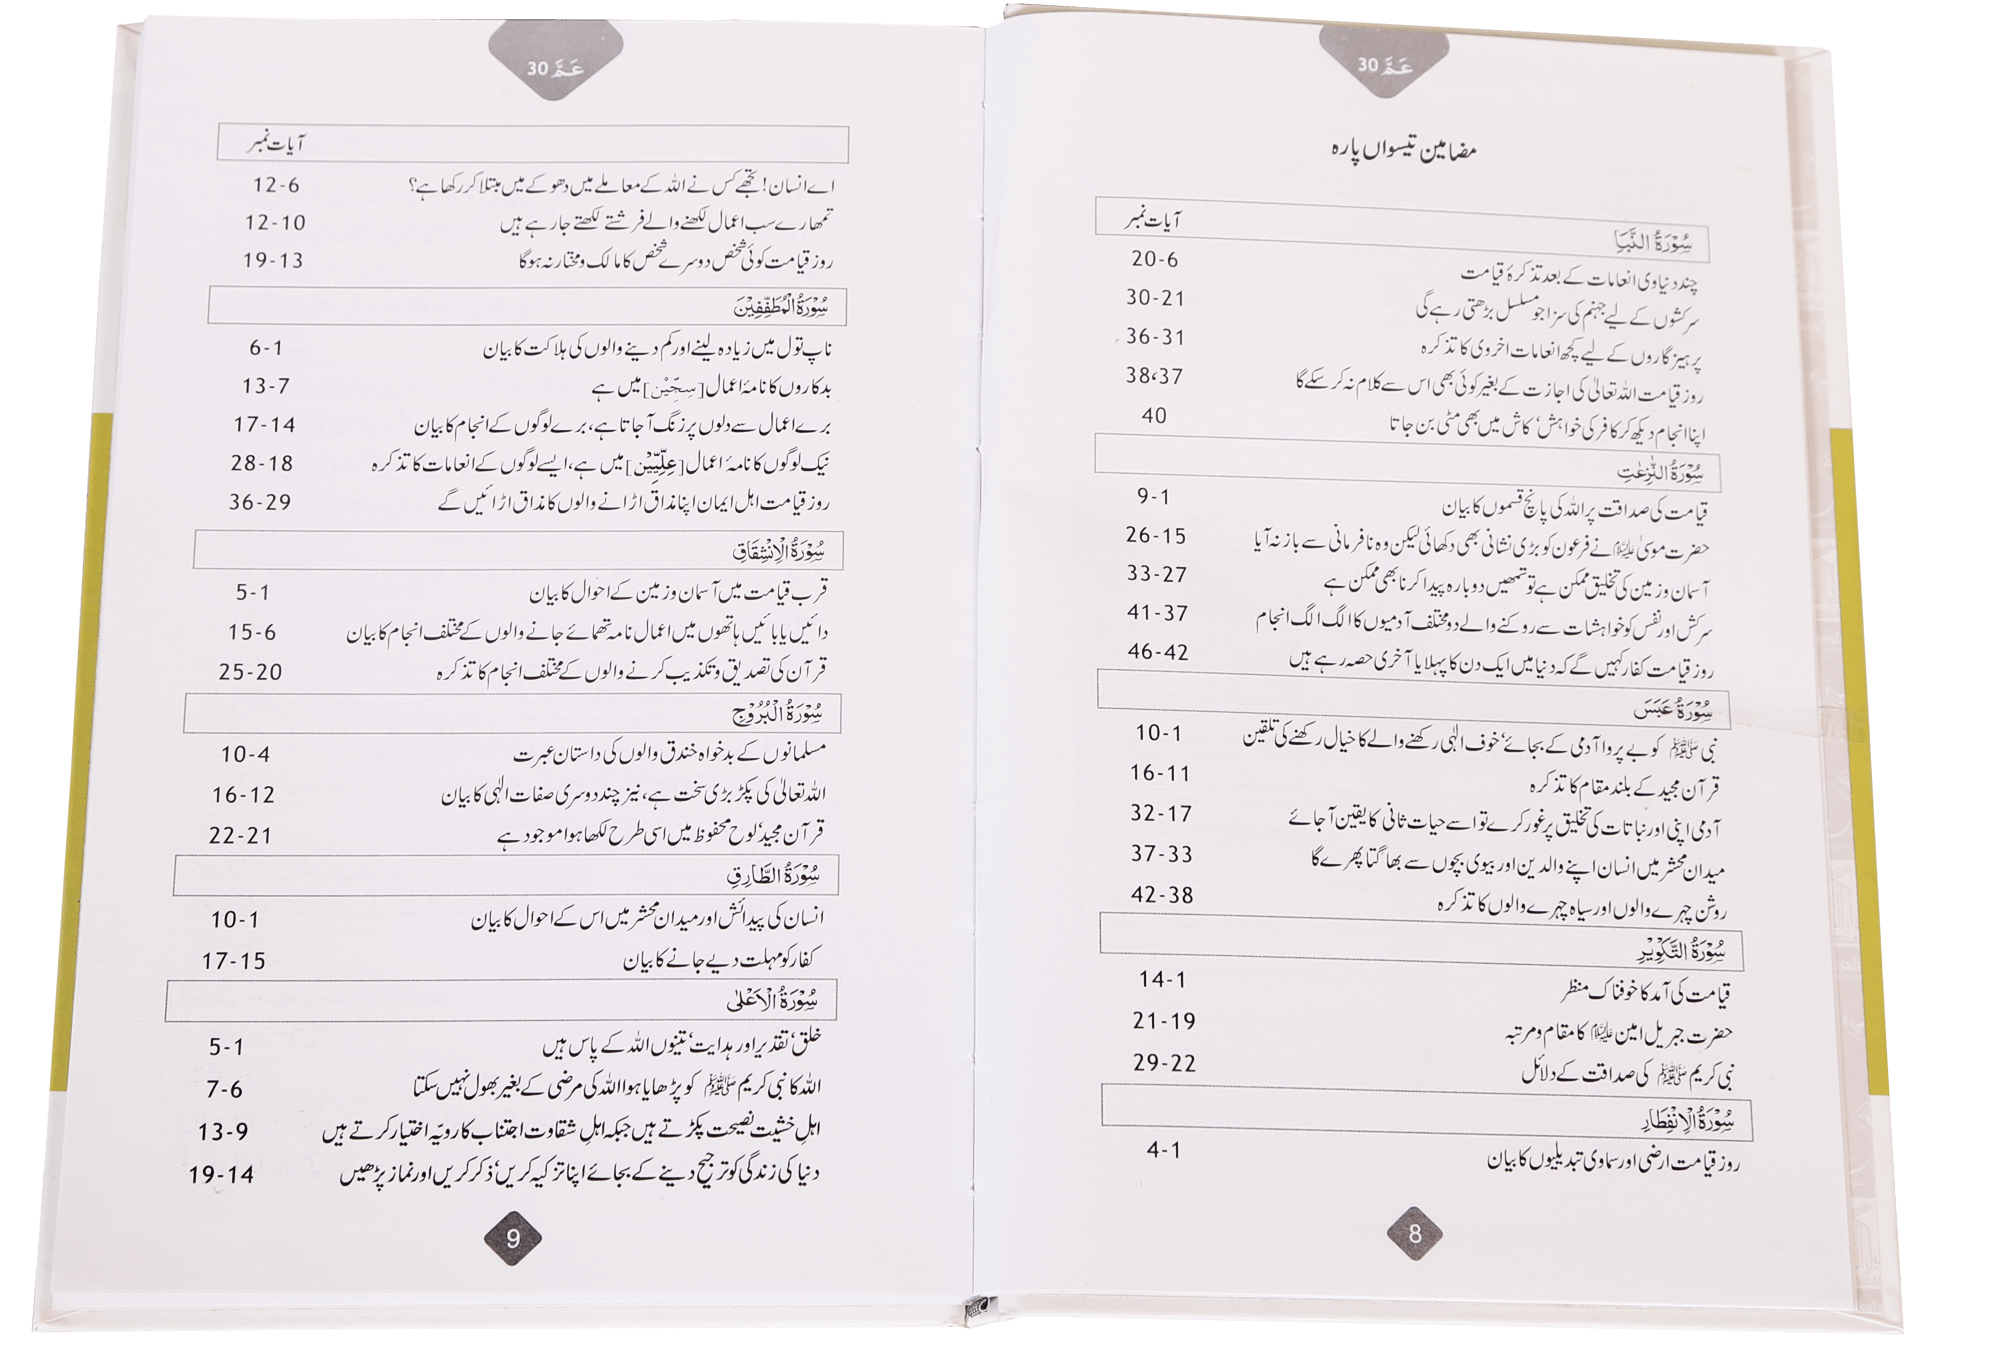 عَمَّ 30
مضامین تیسواں پارہ
سُوْرَةُ النَّبَاِ آیات نمبر
چند دنیاوی انعامات کے بعد تذکرۂ قیامت 20-6
سرکشوں کے لیے جہنم کی سزا جو مسلسل بڑھتی رہے گی 30-21
پرہیزگاروں کے لیے کچھ انعامات اخروی کا تذکرہ 36-31
روز قیامت اللہ تعالیٰ کی اجازت کے بغیر کوئی بھی اس سے کلام نہ کر سکے گا 38،37
اپنا انجام دیکھ کر کافر کی خواہش‘ کاش میں بھی مٹی بن جاتا 40
سُوْرَةُ النّٰزِعٰتِ
قیامت کی صداقت پر اللہ کی پانچ قسموں کا بیان 9-1
حضرت موسیٰ علیہ السلام نے فرعون کو بڑی نشانی بھی دکھائی لیکن وہ نافرمانی سے باز نہ آیا 26-15
آسمان و زمین کی تخلیق ممکن ہے تو تمھیں دوبارہ پیدا کرنا بھی ممکن ہے 33-27
سرکش اور نفس کو خواہشات سے روکنے والے دو مختلف آدمیوں کا الگ الگ انجام 41-37
روز قیامت کفار کہیں گے کہ دنیا میں ایک دن کا پہلا یا آخری حصہ رہے ہیں 46-42
سُوْرَةُ عَبَسَ
نبی ﷺ کو بے پروا آدمی کے بجائے‘ خوف الٰہی رکھنے والے کا خیال رکھنے کی تلقین 10-1
قرآن مجید کے بلند مقام کا تذکرہ 16-11
آدمی اپنی اور نباتات کی تخلیق پر غور کرے تو اسے حیات ثانی کا یقین آ جائے 32-17
میدان محشر میں انسان اپنے والدین اور بیوی بچوں سے بھاگتا پھرے گا 37-33
روشن چہرے والوں اور سیاہ چہرے والوں کا تذکرہ 42-38
سُوْرَةُ التَّكْوِيْرِ
قیامت کی آمد کا خوفناک منظر 14-1
حضرت جبریل امین علیہ السلام کا مقام و مرتبہ 21-19
نبی کریم ﷺ کی صداقت کے دلائل 29-22
سُوْرَةُ الْاِنْفِطَارِ
روز قیامت ارضی اور سماوی تبدیلیوں کا بیان 4-1
8
عَمَّ 30
آیات نمبر
اے انسان! تجھے کس نے اللہ کے معاملے میں دھوکے میں مبتلا کر رکھا ہے؟ 12-6
تمھارے سب اعمال لکھنے والے فرشتے لکھتے جا رہے ہیں 12-10
روز قیامت کوئی شخص دوسرے شخص کا مالک و مختار نہ ہوگا 19-13
سُوْرَةُ الْمُطَفِّفِيْنَ
ناپ تول میں زیادہ لینے اور کم دینے والوں کی ہلاکت کا بیان 6-1
بدکاروں کا نامۂ اعمال [سِجِّيْن] میں ہے 13-7
برے اعمال سے دلوں پر زنگ آ جاتا ہے، برے لوگوں کے انجام کا بیان 17-14
نیک لوگوں کا نامۂ اعمال [عِلِّيِّيْن] میں ہے، ایسے لوگوں کے انعامات کا تذکرہ 28-18
روز قیامت اہل ایمان اپنا مذاق اڑانے والوں کا مذاق اڑائیں گے 36-29
سُوْرَةُ الْاِنْشِقَاقِ
قرب قیامت میں آسمان و زمین کے احوال کا بیان 5-1
دائیں یا بائیں ہاتھوں میں اعمال نامہ تھمائے جانے والوں کے مختلف انجام کا بیان 15-6
قرآن کی تصدیق و تکذیب کرنے والوں کے مختلف انجام کا تذکرہ 25-20
سُوْرَةُ الْبُرُوْجِ
مسلمانوں کے بدخواہ خندق والوں کی داستان عبرت 10-4
اللہ تعالیٰ کی پکڑ بڑی سخت ہے، نیز چند دوسری صفات الٰہی کا بیان 16-12
قرآن مجید‘ لوح محفوظ میں اسی طرح لکھا ہوا موجود ہے 22-21
سُوْرَةُ الطَّارِقِ
انسان کی پیدائش اور میدان محشر میں اس کے احوال کا بیان 10-1
کفار کو مہلت دیے جانے کا بیان 17-15
سُوْرَةُ الْاَعْلٰى
خلق‘ تقدیر اور ہدایت‘ تینوں اللہ کے پاس ہیں 5-1
اللہ کا نبی کریم ﷺ کو پڑھایا ہوا اللہ کی مرضی کے بغیر بھول نہیں سکتا 7-6
اہلِ خشیت نصیحت پکڑتے ہیں جبکہ اہلِ شقاوت اجتناب کا رویّہ اختیار کرتے ہیں 13-9
دنیا کی زندگی کو ترجیح دینے کے بجائے اپنا تزکیہ کریں‘ ذکر کریں اور نماز پڑھیں 19-14
9